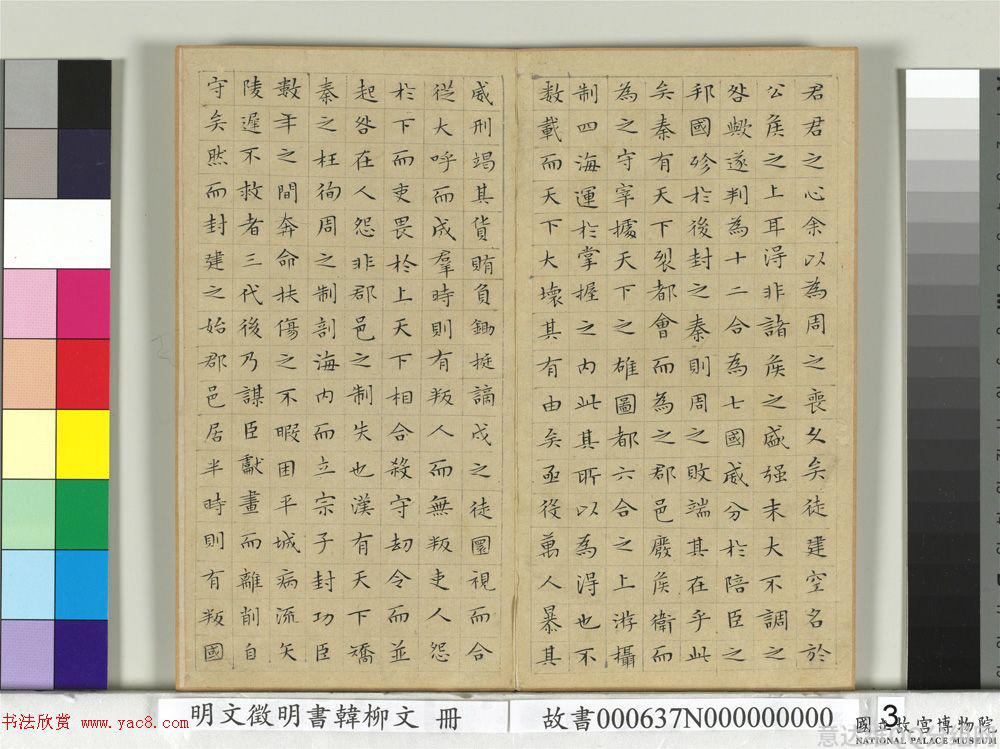 君君之心余以為周之喪久矣徒建空名於
公侯之上耳得非諸侯之盛强末大不調之
咎歟遂判為十二合為七國威分於陪臣之
邦國殄於後封之秦則周之敗端其在乎此
矣秦有天下裂都會而為之郡邑廢侯衛而
為之守宰據天下之雄圖都六合之上游攝
制四海運於掌握之內此其所以為得也不
數載而天下大壞其有由矣亟役萬人暴其
威刑竭其貨賄負鋤梃謫戍之徒圜視而合
從大呼而成羣時則有叛人而無叛吏人怨
於下而吏畏於上天下相合殺守劫令而並
起咎在人怨非郡邑之制失也漢有天下矯
秦之枉徇周之制剖海內而立宗子封功臣
數年之間奔命扶傷之不暇困平城病流矢
陵遲不救者三代後乃謀臣獻畫而離削自
守矣然而封建之始郡邑居半時則有叛國
书法欣赏 www.yac8.com
明文徵明書韓柳文 冊
故書000637N000000000
3
國立故宮博物院
NATIONAL PALACE MUSEUM